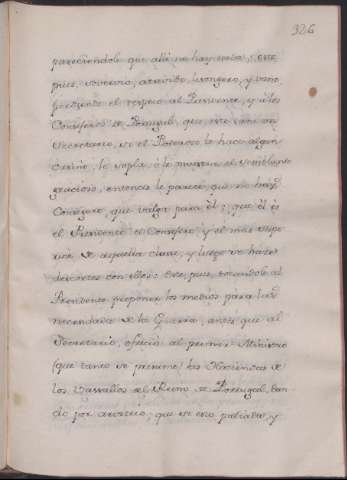 326
pareciendole que allá no hay otro; este
pues, sovervio, atrevido, lisongero, y vano,
perdiendo el respeto al Presidente, y à los
Consejeros de Portugal, que este tiene un
Secretario, si el Poderoso le hace algun
cariño, le sopla, ò le muestra el semblante
gracioso, entonces le parece que no hay
Consejero, que valga para él; que él es
el Presidente, el Consejero, y el mas supe
rior de aquella clase, y luego se hace
con ellos. Este, pues, tocandole al
Presidente proponer los medios para las
necesidades de la Guerra, antes que al
Secretario, ofreció al primer Ministro
(que tanto se presume) las Haciendas de
los Vassallos del Reino de Portugal, dan
do por arvitrio, que se eso pedia, y